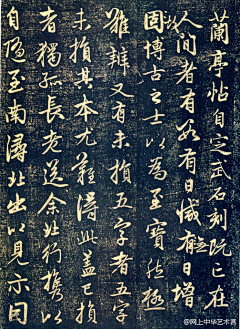 蘭亭帖自定武石刻既亡在
人間者有數有日減無日增
故博古之士以為至寶然極
難辨又有未損五字者五字
未損其本尤難得此蓋已損
者獨孤長老送余北行攜以
自隨至南潯北出以見示因
@网上中华艺术宫